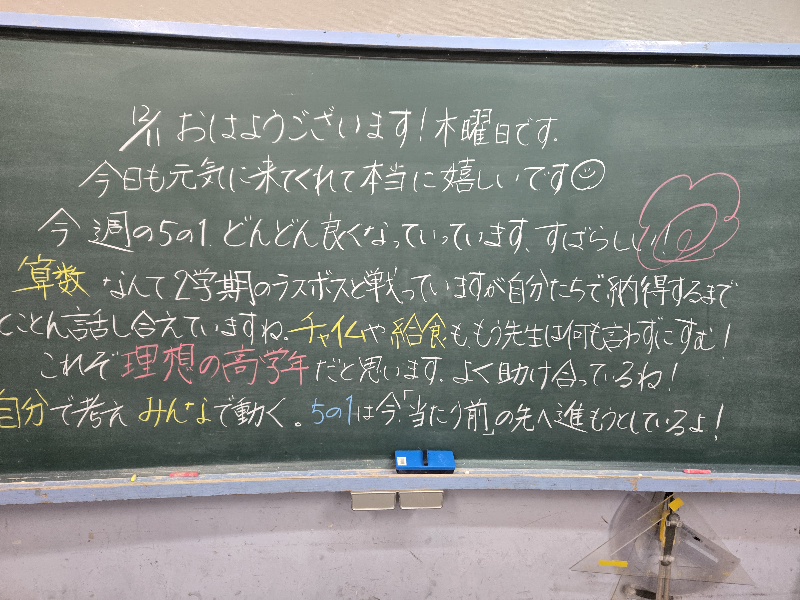 12/11 おはようございます！木曜日です.
今日も元気に来てくれて本当に嬉しいです
今週の5の1. どんどん良くなっていっています、すばらしい!
算数なんて2学期のラスボスと戦っていますが自分たちで納得するまで
とことん話し合えていますね. チャイムや給食ももう先生は何も言わずにすむ！
これぞ理想の高学年だと思います. よく助け合っているね！
自分で考えみんなで動く。5の1は今「当たり前」の先へ進もうとしているよ！